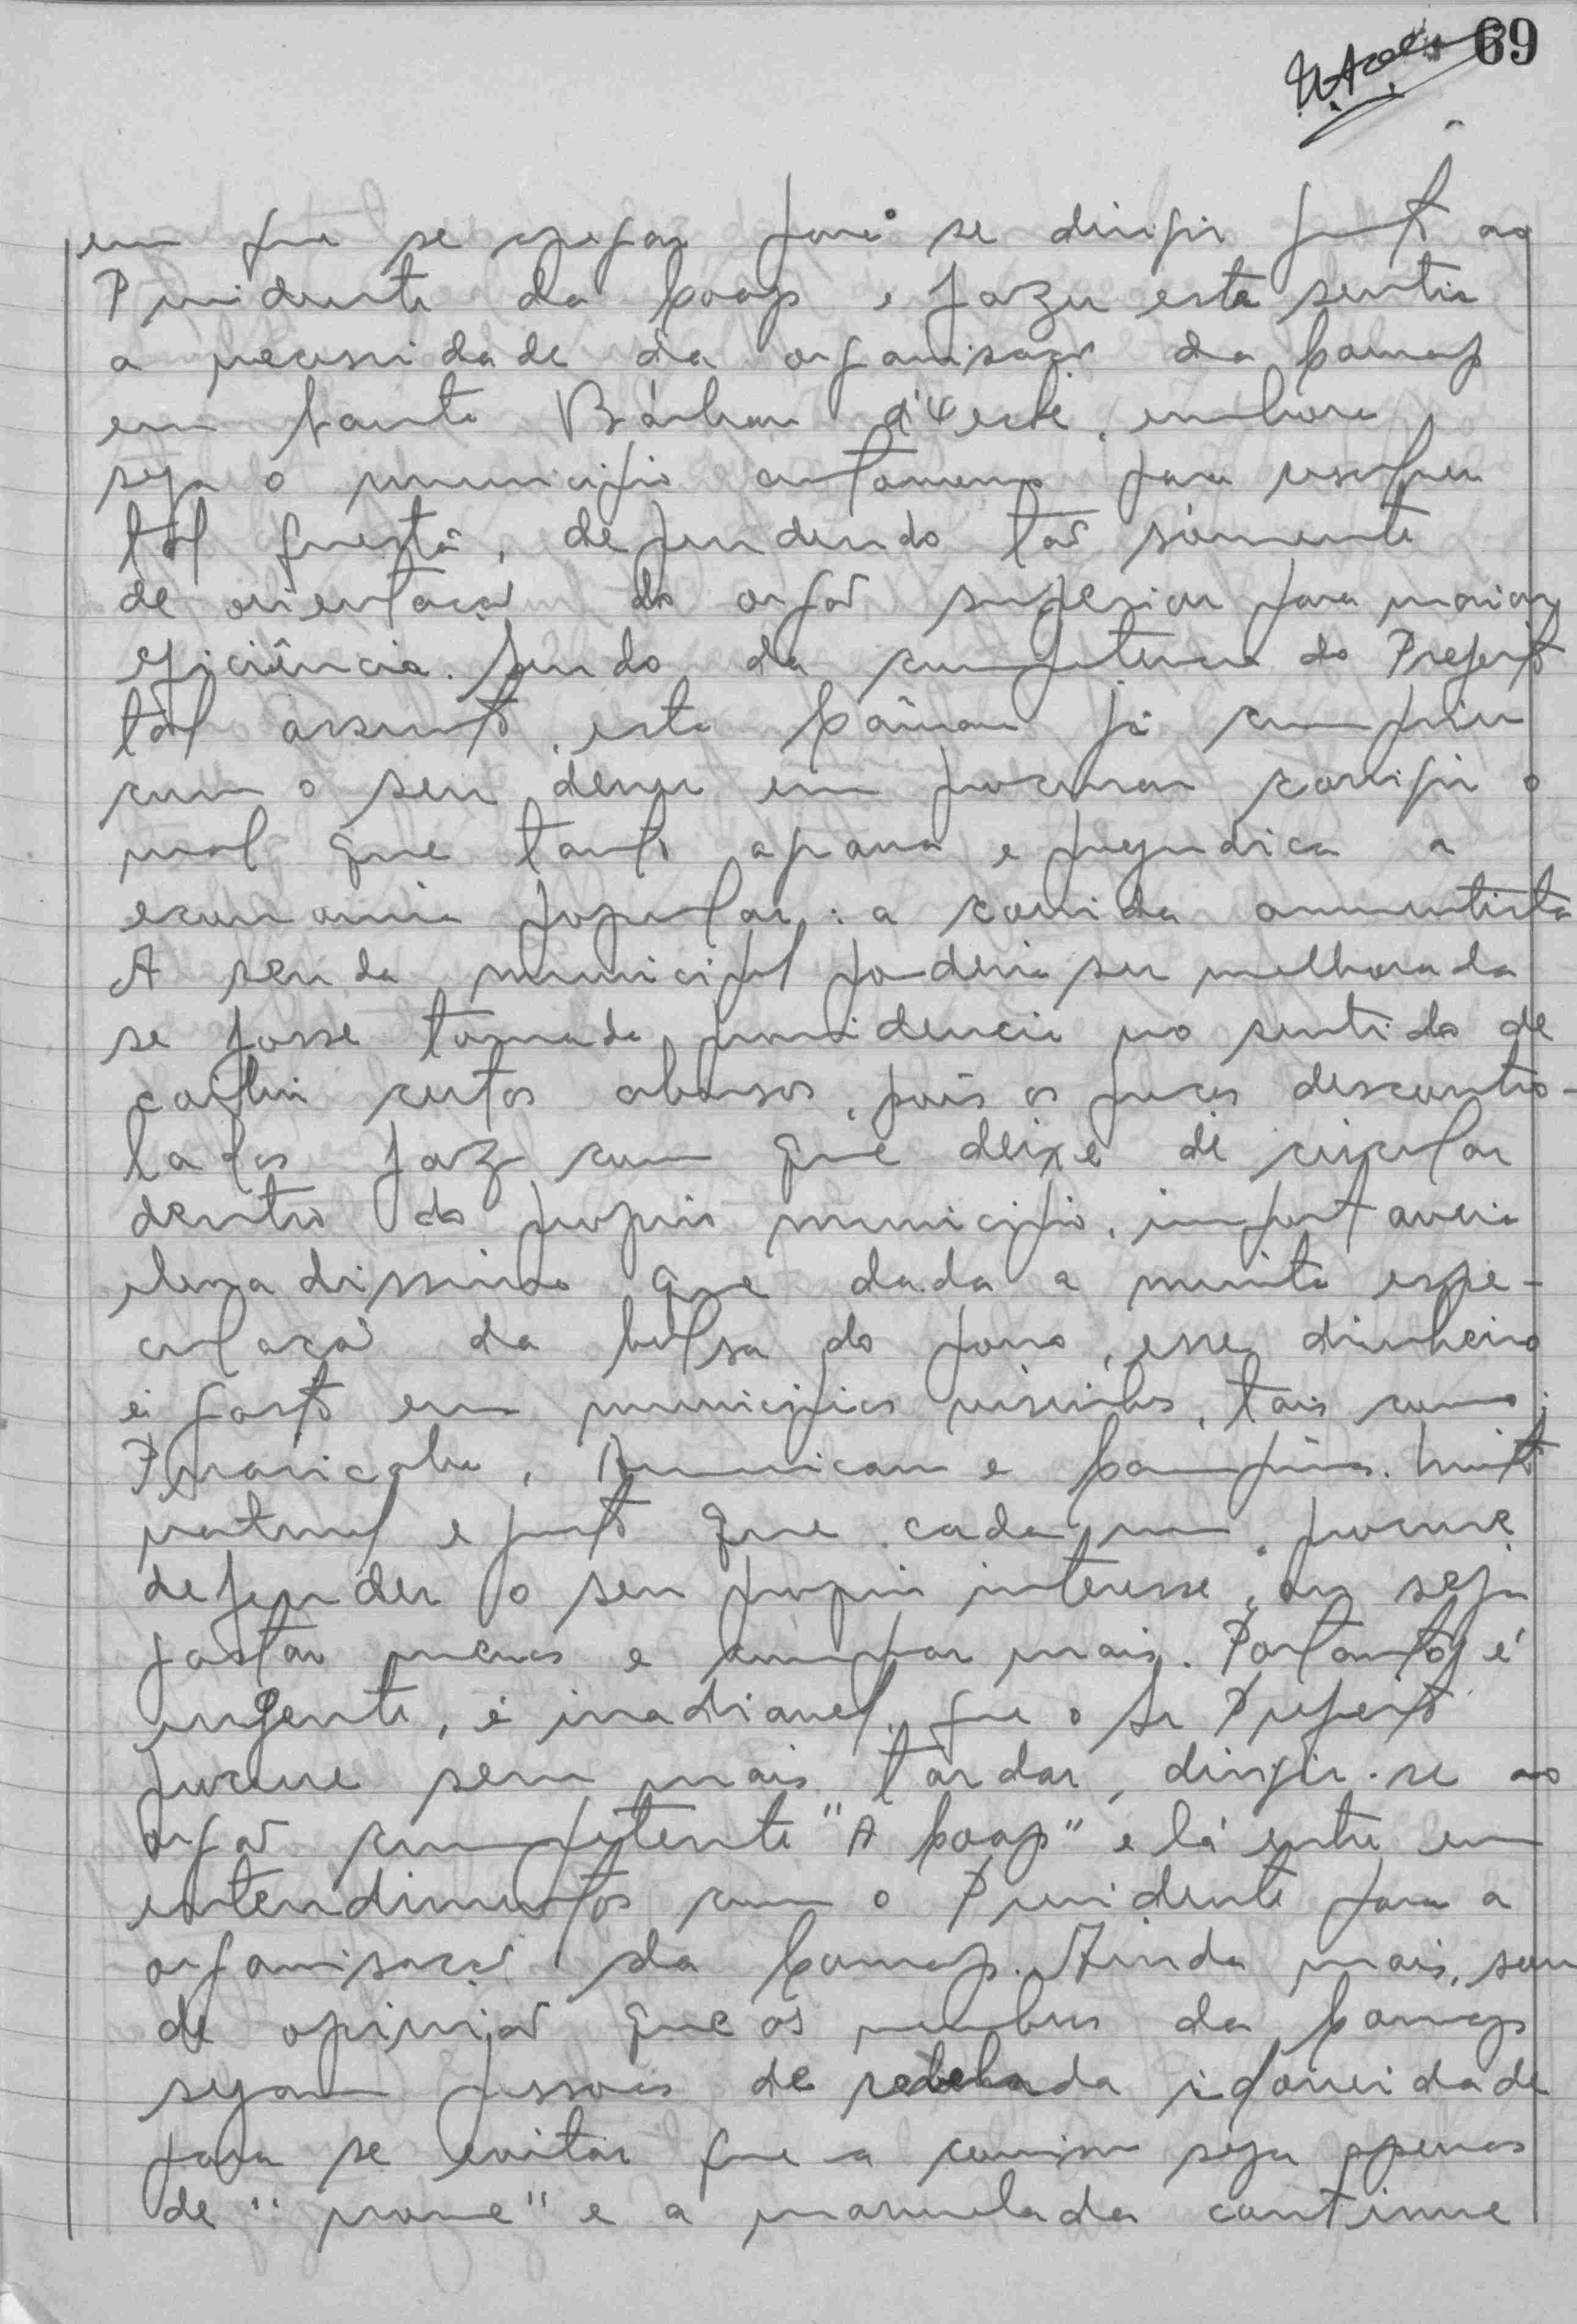 69
em que se apegar para se dirigir junto ao
Presidente da Coap e fazer este sentir
a necessidade da organisação da Comap
em Santa Bárbara d'Oeste, embora
seja o municipio autonomo para resolver
tal questão, dependendo tão sómente
de orientação do orgão superior para maior
eficiência. Sendo da competencia do Prefeito
tal assunto, esta Câmara já cumpriu
com o seu dever em procurar corrigir o
mal que tanto apavora e prejudica a
economia popular: a corrida aumentista
A renda municipal poderia ser melhorada
se fosse tomada providencia no sentido de
coibir certos abusos, pois os preços descontro-
lados faz com que deixe de circular
dentro do proprio municipio, importancia
elevadissima que dada a muita espe-
culação da bolsa do povo, esse dinheiro
é gasto em municipios visinhos, tais como:
Piracicaba, Americana e Campinas. Muito
natural e justo que cada um procure
defender o seu proprio interesse, ou seja
gastar menos e comprar mais. Portanto, é
urgente, é inadiavel, que o Sr Prefeito
procure sem mais tardar, dirigir-se ao
orgão competente "A Coap" e lá entre em
entendimentos com o Presidente para a
organisação da Comap. Ainda mais, sou
de opinião que os membros da Comap
sejam pessoas de idoneidade
para se evitar que a seja apenas
de "nome" e a marmelada continue